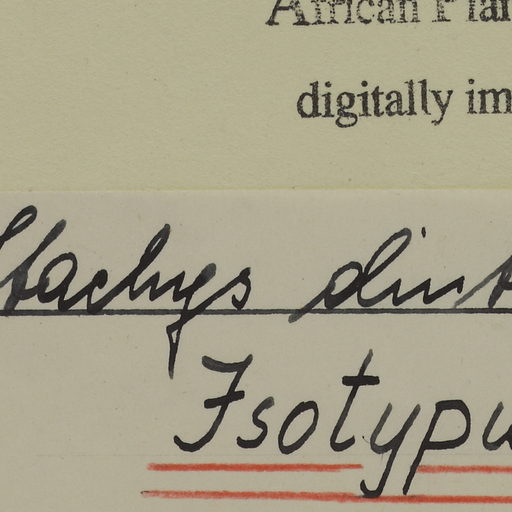 African Plan
digitally im
Stachys dint
Isotypu